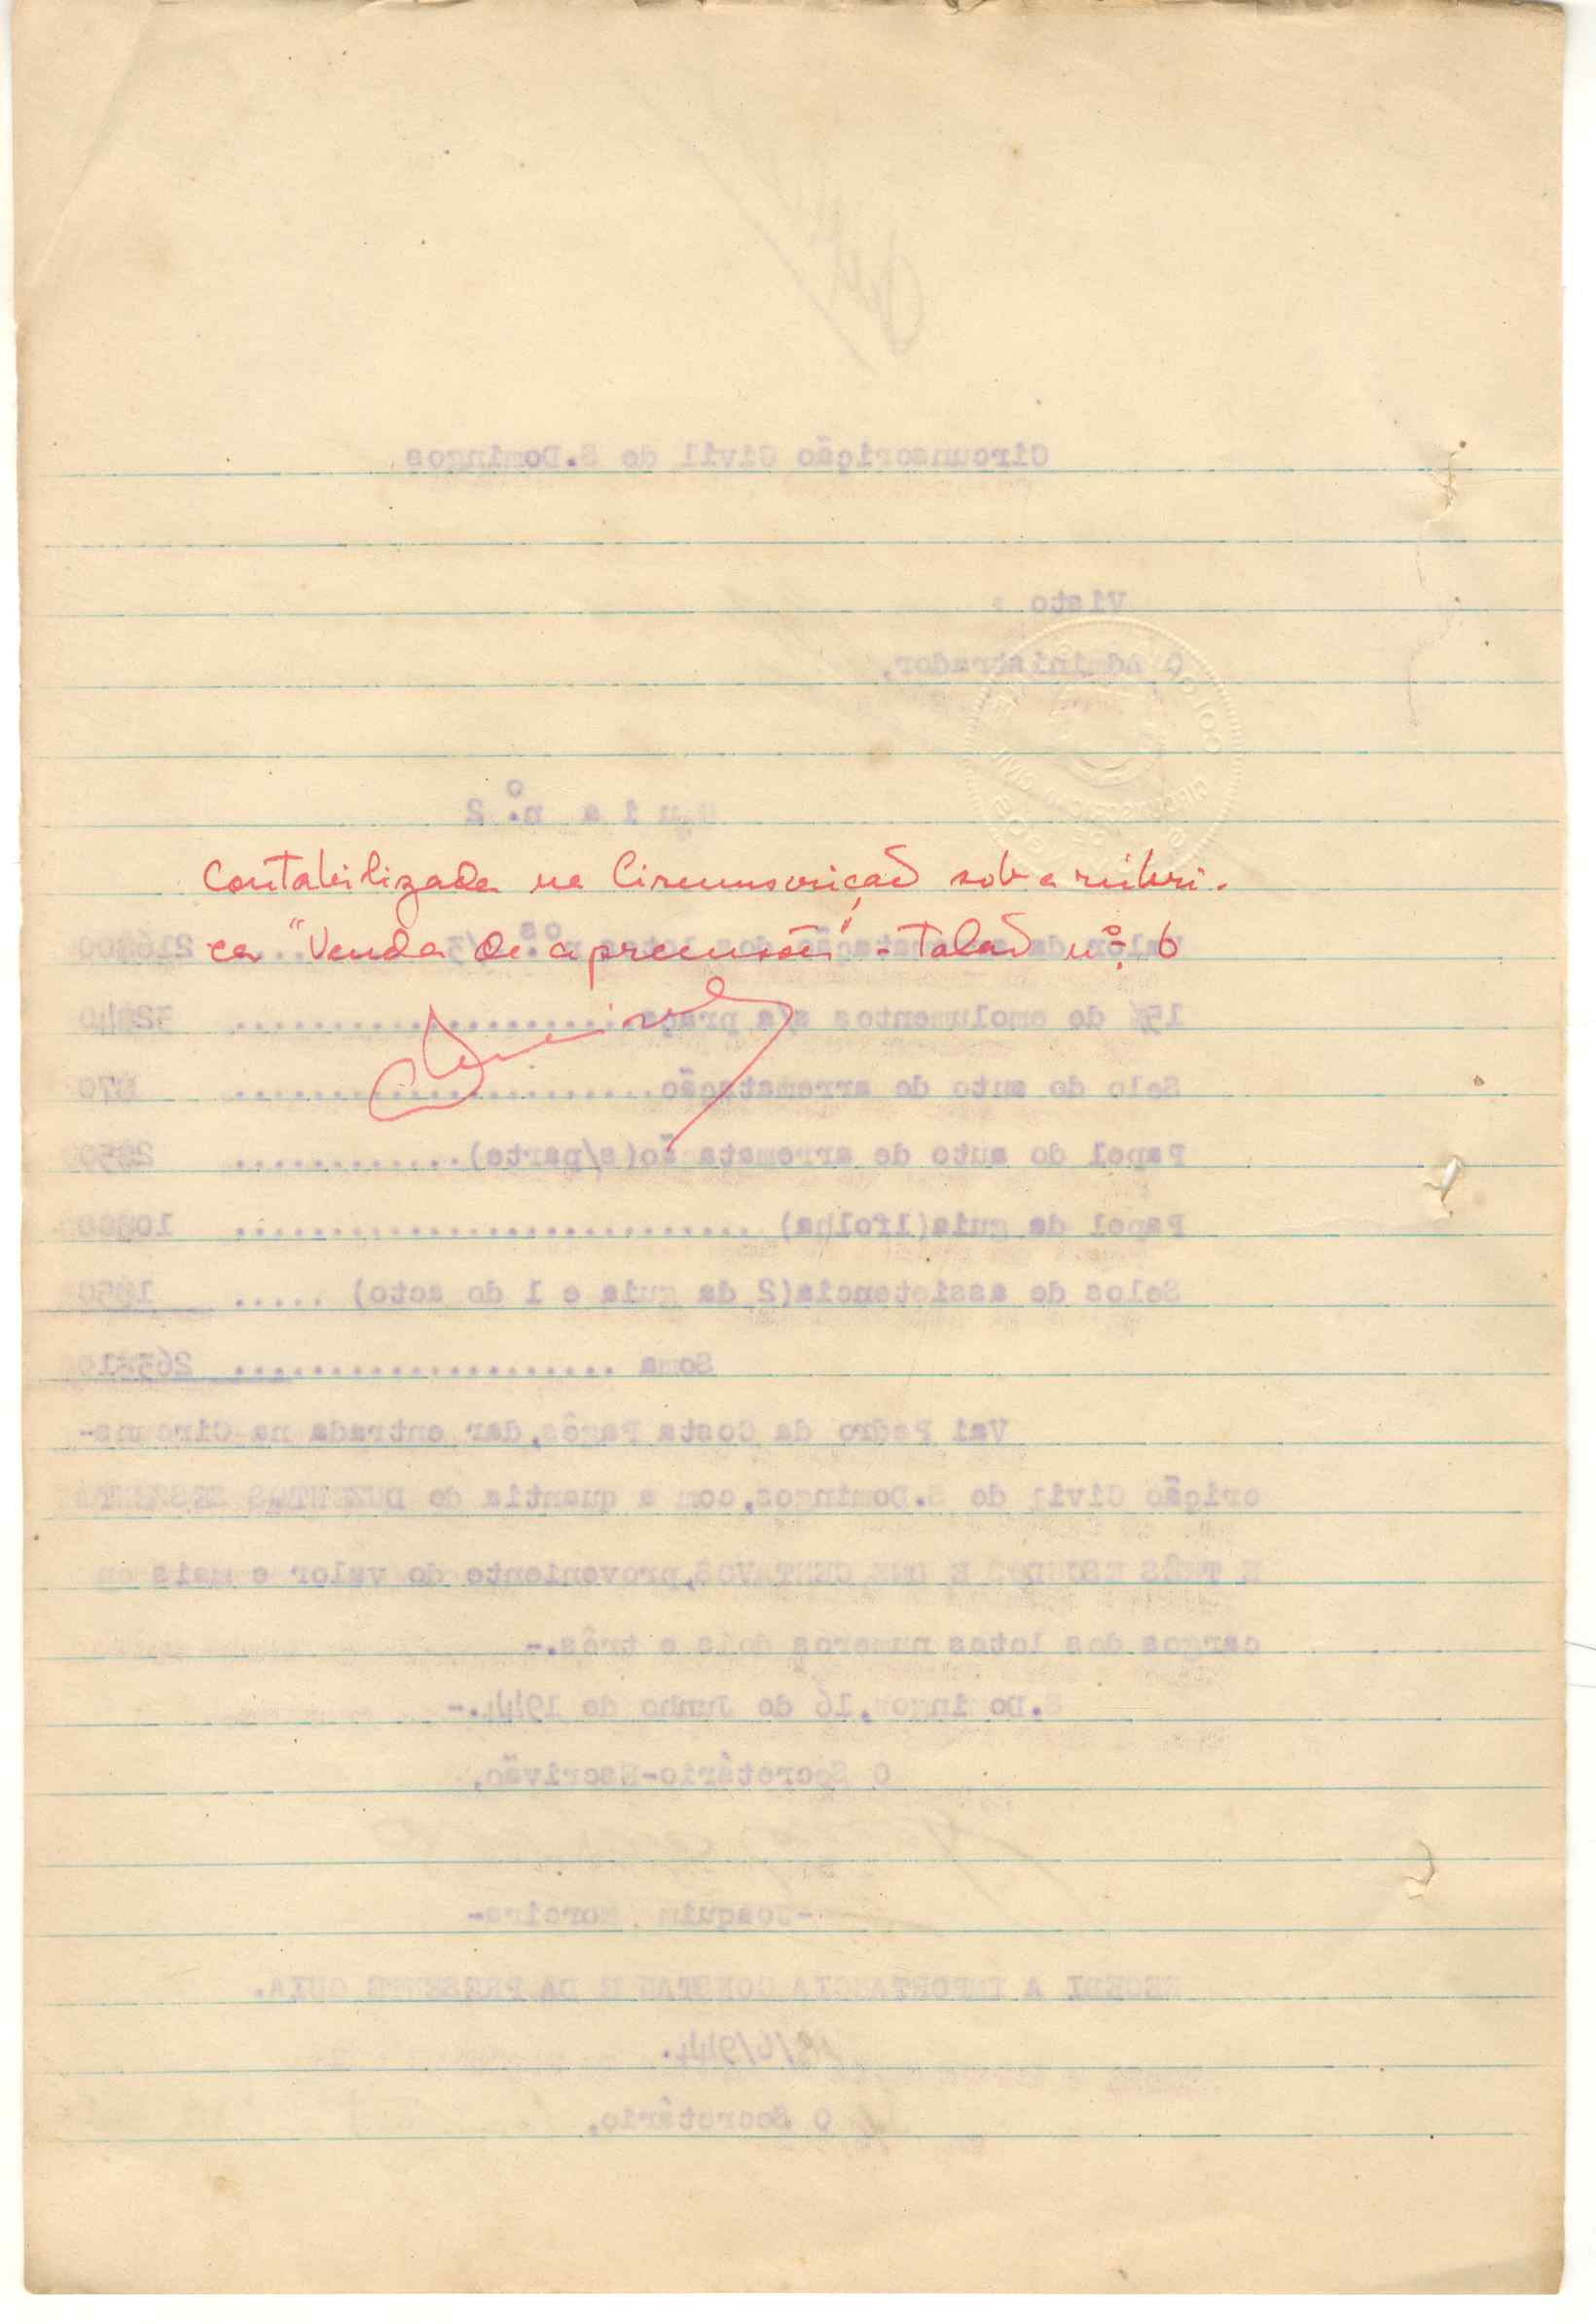 Contabilizada na Circunscrição sob a rubri-
ca "Venda de apreensões" - Talão nº 6
Circunscrição Civil de S.Domingos
Visto
O Administrador,
g u i a n.º 2
15% de emolumentos s/a praça.................... 32$40
Selo do auto de arrematação...................... $70
Papel do auto de arrematação(s/parte)............ 2$50
Papel da guia(1folha) ........................... 10$00
Selos de assistencia(2 da guia e 1 do acto) ..... 1$50
Soma .................... 263$10
Vai Pedro da Costa Parês,dar entrada na Circuns-
crição Civil de S.Domingos,com a quantia de DUZENTOS SESSENTA
E TRÊS ESCUDOS E DEZ CENTAVOS,proveniente do valor e mais en
cargos dos lotes numeros dois e três.-
S.Domingos,16 de Junho de 1944.-
O Secretário-Escrivão,
-Joaquim Moreira-
RECEBI A IMPORTANCIA CONSTANTE DA PRESENTE GUIA.
/6/944.
O Secretário,